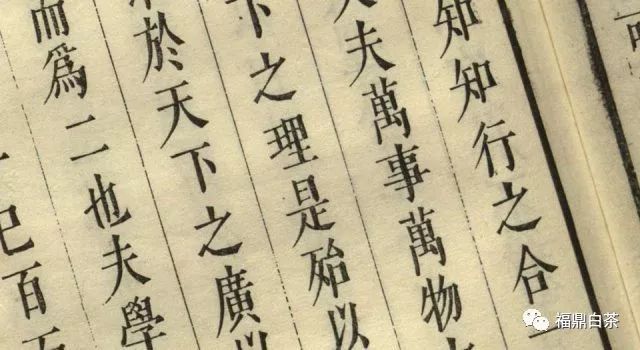 知知行之合一
夫夫萬事萬物
下之理是殆以
於天下之廣以
而為二也夫學
已百
福鼎白茶